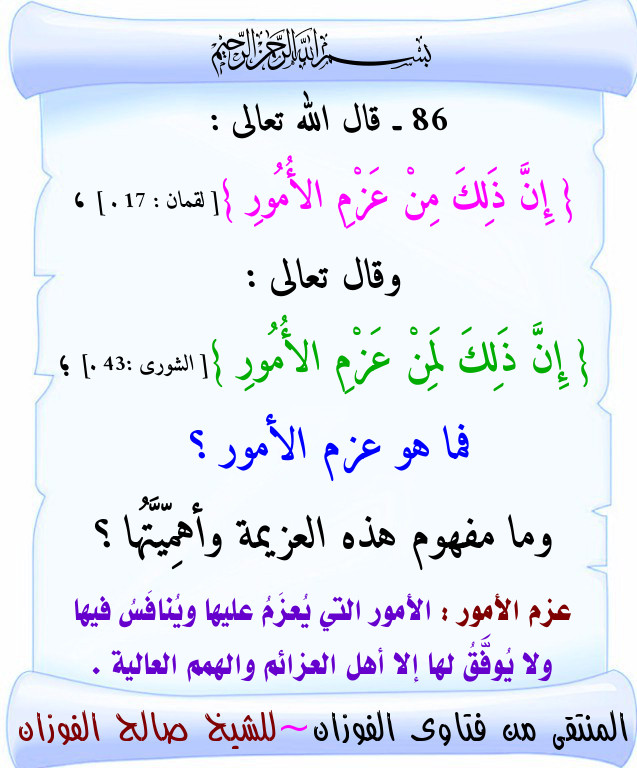 بسم الله الرحمن الرحيم
86 ـ قال الله تعالى :
{ إِنَّ ذَلِكَ مِنْ عَزْمِ الأُمُورِ }[ لقمان : 17 . ] ،
وقال تعالى :
{ إِنَّ ذَلِكَ لَمِنْ عَزْمِ الأُمُورِ }[ الشورى :43 .] ؛
فما هو عزم الأمور ؟
وما مفهوم هذه العزيمة وأهمِّيَّتُها ؟
عزم الأمور : الأمور التي يُعزَمُ عليها ويُنافَسُ فيها
ولا يُوفَّقُ لها إلا أهل العزائم والهمم العالية .
المنتقى من فتاوى الفوزان~للشيخ صالح الفوزان